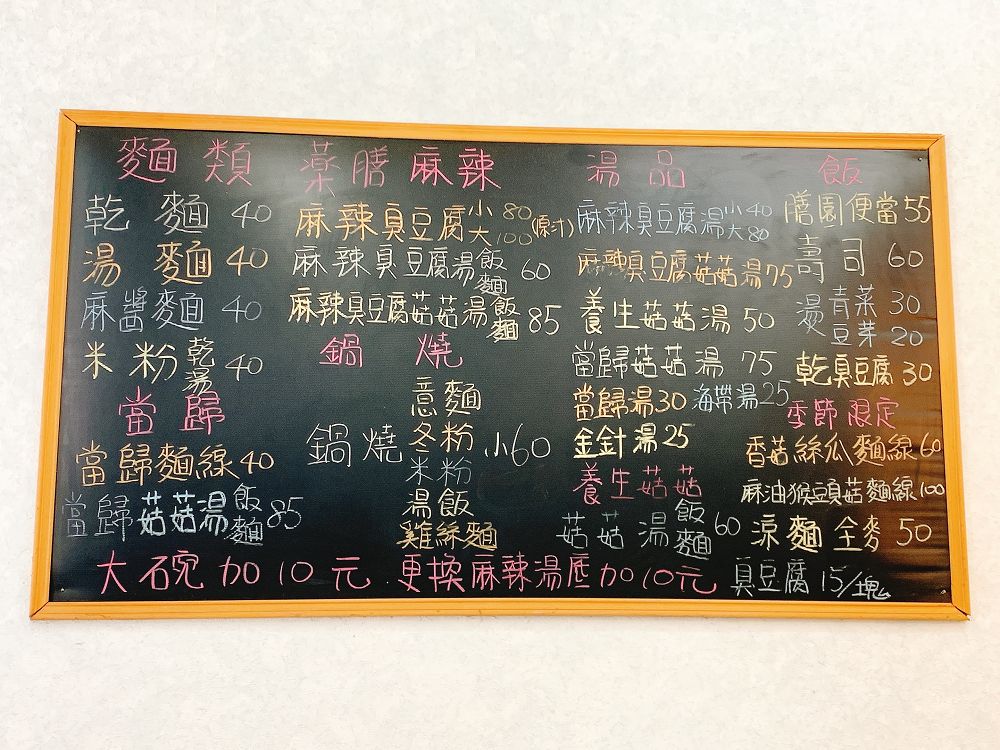 麵類
乾麵 40
湯麵 40
麻醬麵 40
米粉 乾湯 40
當歸
當歸麵線 40
當歸菇菇湯飯麵 85
藥膳麻辣
麻辣臭豆腐 小80 大100 (原汁)
麻辣臭豆腐湯飯麵 60
麻辣臭豆腐菇菇湯飯麵 85
鍋燒
鍋燒 意麵 冬粉 米粉 湯飯 雞絲麵 小60
湯品
麻辣臭豆腐湯 小40 大80
麻辣臭豆腐菇菇湯 75
養生菇菇湯 50
當歸菇菇湯 75
當歸湯30 海帶湯25
金針湯 25
養生菇菇
菇菇湯飯麵 60
飯
膳園便當 55
壽司 60
燙青菜 30
豆芽 20
乾臭豆腐 30
季節限定
香菇絲瓜麵線 60
麻油猴頭菇麵線 100
涼麵 全麥 50
大碗加10元 更換麻辣湯底加10元 臭豆腐 15/塊